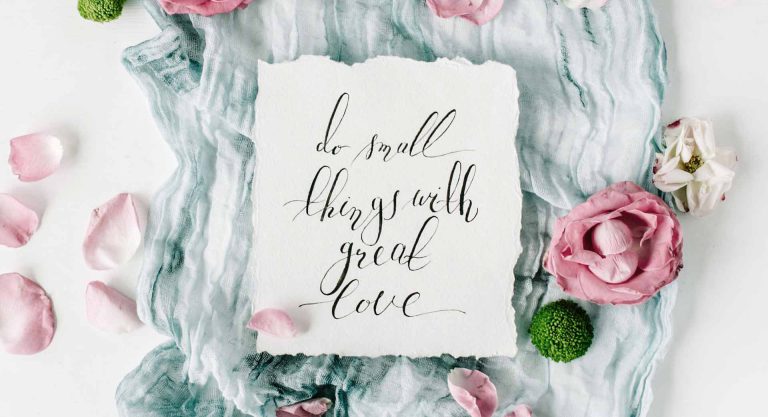 do small
things with
great
love